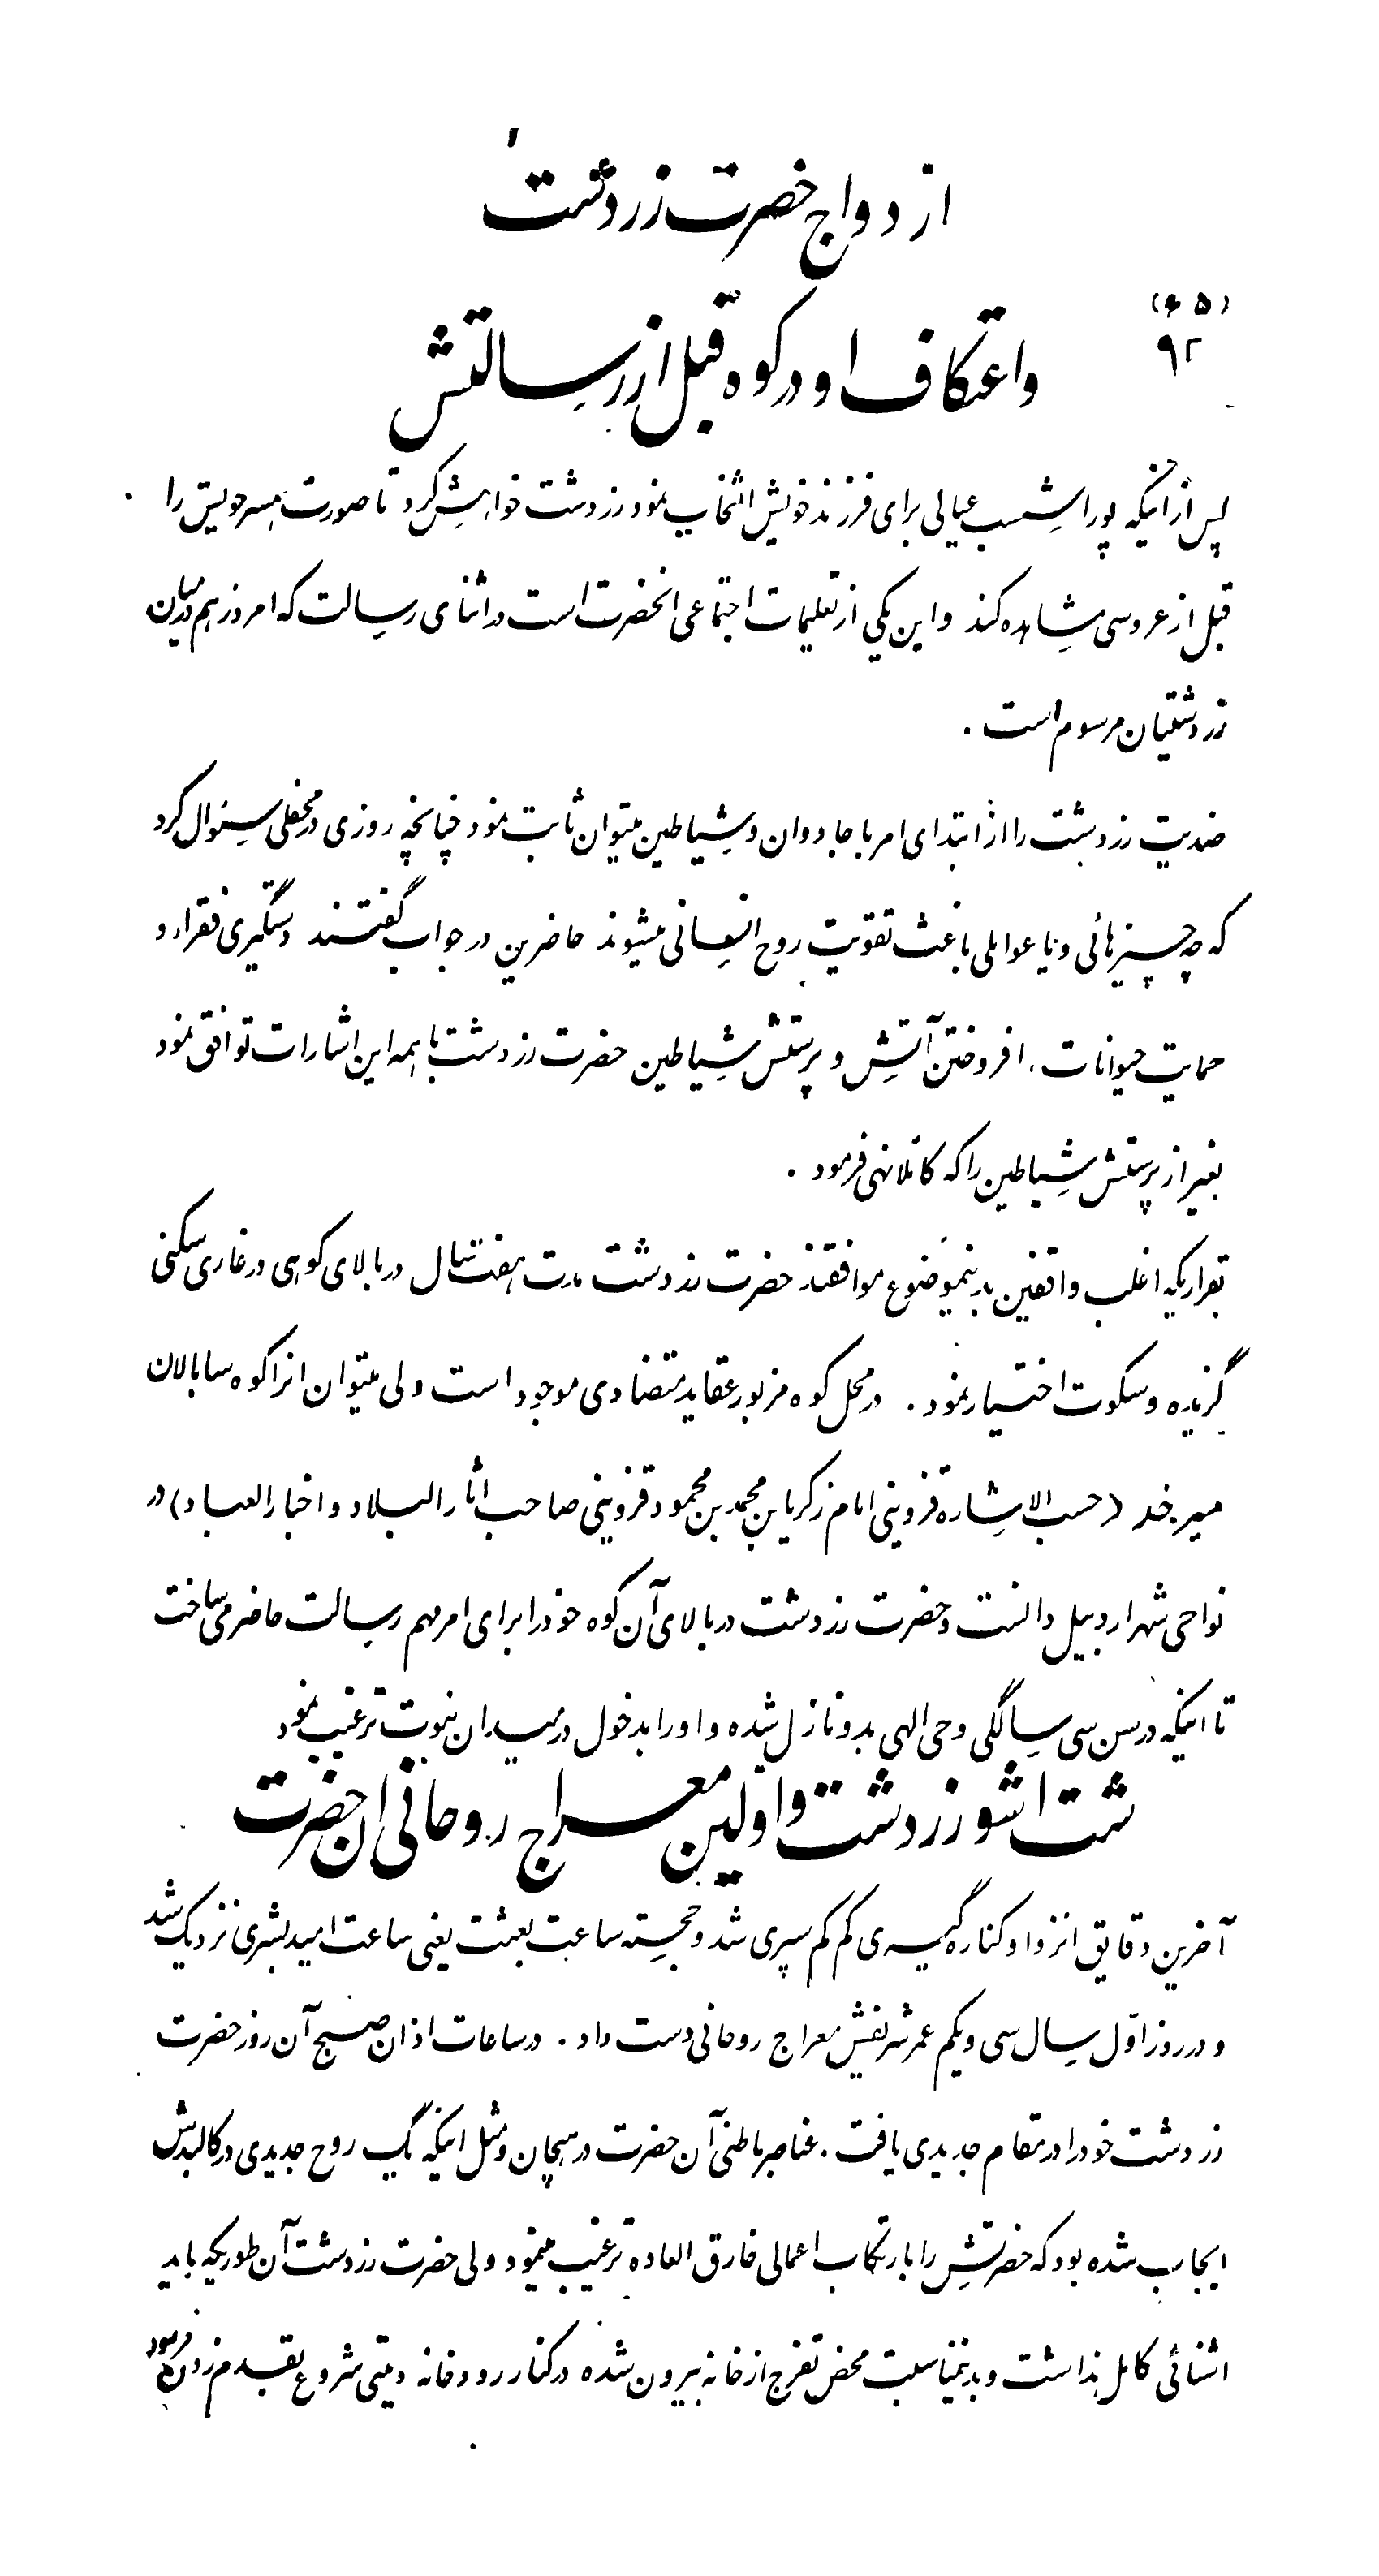 ازدواج حضرت زردشت
(۶۵)
۹۲
واعتکاف او در کوه قبل از رسالتش
پس از اینکه پوراشسب عیالی برای فرزند خویش انتخاب نمود زردشت خواهش کرد تا صورت همسر خویش را
قبل از عروسی مشاهده کند واین یکی از تعلیمات اجتماعی انحضرت است در اثنای رسالت که امروز هم در میان
زردشتیان مرسوم است .
ضدیت زردشت را از ابتدای امر با جادوان و شیاطین میتوان ثابت نمود چنانچه روزی در محفلی سئوال کرد
که چه چیزهائی و یا عواملی باعث تقویت روح انسانی میشوند حاضرین در جواب گفتند دستگیری فقرا و
حمایت حیوانات ، افروختن آتش و پرستش شیاطین حضرت زردشت با همه این اشارات توافق نمود
بغیر از پرستش شیاطین را که کاملا نهی فرمود .
بقراریکه اغلب واقفین بدینموضوع موافقند حضرت زردشت مدت هفت سال در بالای کوهی در غاری سکنی
گزیده و سکوت اختیار نمود . در محل کوه مزبور عقاید متضادی موجود است ولی میتوان انرا کوه سابالان
میرخند ( حسب الاشاره قزوینی امام زکریا بن محمد بن محمود قزوینی صاحب اثار البلاد و اخبار العباد ) در
نواحی شهر اردبیل دانست و حضرت زردشت در بالای آن کوه خود را برای امر مهم رسالت حاضر می ساخت
تا اینکه در سن سی سالگی وحی الهی بدو نازل شده و او را بدخول در میدان نبوت ترغیب نمود
شت اشو زردشت و اولین معراج روحانی ان حضرت
آخرین دقایق انزوا و کناره گیری کم کم سپری شد و خجسته ساعت بعثت یعنی ساعت امید بشری نزدیک شد
و در روز اوّل سال سی و یکم عمر شریفش معراج روحانی دست داد . در ساعات اذان صبح آن روز حضرت
زردشت خود را در مقام جدیدی یافت . عناصر باطنی آن حضرت در هیجان و مثل اینکه یک روح جدیدی در کالبدش
ایجاب شده بود که حضرتش را بارتکاب اعمالی خارق العاده ترغیب مینمود ولی حضرت زردشت آن طوریکه باید
اشنائی کامل نداشت و بدینمناسبت محض تفرج از خانه بیرون شده در کنار رودخانه دیتی شروع بقدم زدن فرمود